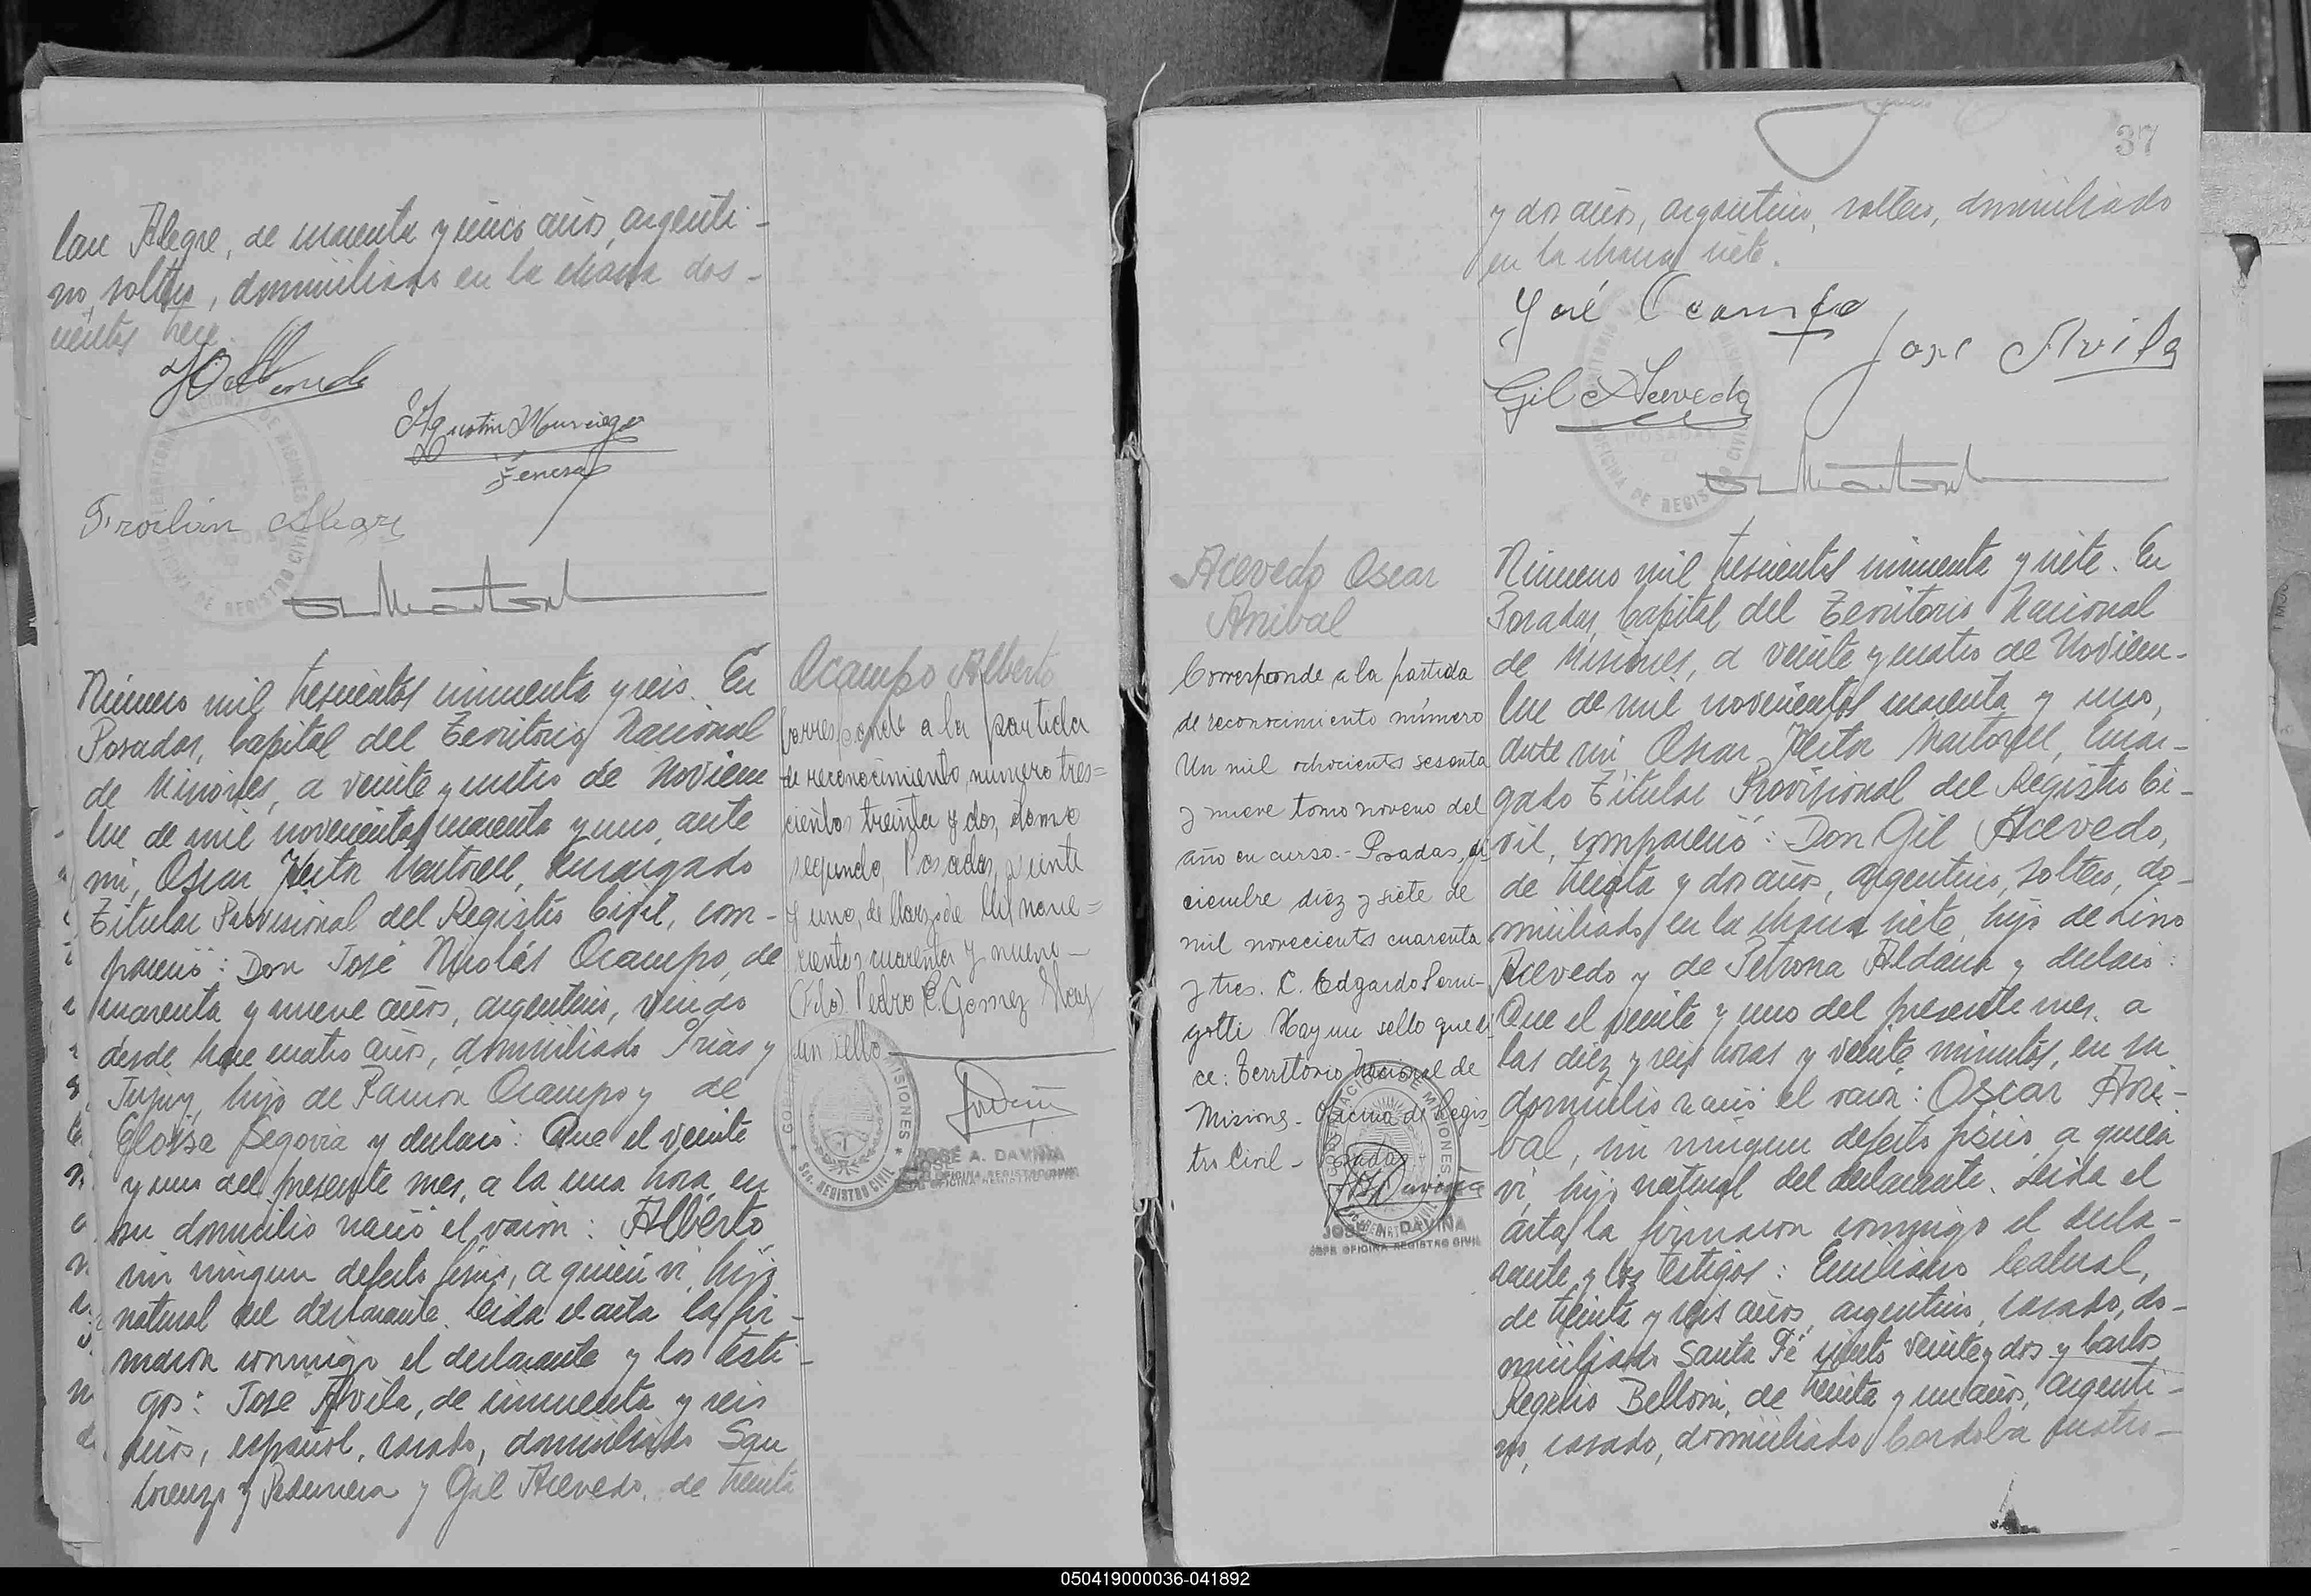 lan Alegre, de cuarenta y cinco años, argenti-
no, soltero, domiciliado en la chacra dos-
cientos trece.
Agustin
Froilán Alegre
Número mil trescientos cincuenta y seis. En
Posadas, Capital del Territorio Nacional
de Misiones, a veinte y cuatro de Noviem
bre de mil novecientos cuarenta y uno, ante
mi, Oscar Heitor Martorell, Encargado
Titular Provisional del Registro Civil, com-
pareció: Don José Nicolás Ocampo, de
cuarenta y nueve años, argentino, viudo
desde hace cuatro años, domiciliado Frias y
Jujuy, hijo de Ramón Ocampo y de
Eloisa Segovia y declaró: Que el veinte
y uno del presente mes, a la una hora en
su domicilio nació el varón: Alberto
sin ningun defecto físico, a quien vi, hijo
natural del declarante. Leida el acta la fir-
maron conmigo el declarante y los testi-
gos: José Avila, de cincuenta y seis
años, español, casado, domiciliado San
Lorenzo y Pedernera y Gil Acevedo, de treinta
Ocampo Alberto
Corresponde a la partida
de reconocimiento, numero tres=
cientos treinta y dos, tomo
segundo, Posadas, veinte
y uno, de Marzo de Mil nove=
cientos cuarenta y nueve-
(Fdo) Pedro C. Gomez Hay
un sello
GOBERNACION DE MISIONES
SEC. REGISTRO CIVIL
JOSÉ A. DAVIÑA
JEFE OFICINA REGISTRO CIVIL
37
y dos años, argentino, soltero, domiciliado
en la chacra siete.
José Ocampo
José Avila
Gil Acevedo
OFICINA DE REGISTRO CIVIL
Acevedo Oscar
Anibal
Corresponde a la partida
de reconocimiento número
Un mil ochocientos sesenta
y nueve tomo noveno del
año en curso.- Posadas, di
ciembre diez y siete de
mil novecientos cuarenta
y tres. C. Edgardo Semi-
gotti. Hay un sello que di
ce: Territorio Nacional de
Misiones- Oficina de Regis
tro Civil- Posadas
GOBERNACION DE MISIONES
JOSÉ A. DAVIÑA
JEFE OFICINA REGISTRO CIVIL
Número mil trescientos cincuenta y siete. En
Posadas, Capital del Territorio Nacional
de Misiones, a veinte y cuatro de Noviem-
bre de mil novecientos cuarenta y uno,
ante mi, Oscar Heitor Martorell, Encar-
gado Titular Provisional del Registro Ci-
vil, compareció: Don Gil Acevedo,
de treinta y dos años, argentino, soltero, do-
miciliado en la chacra siete, hijo de Lino
Acevedo y de Petrona Aldana y declaró:
Que el veinte y uno del presente mes, a
las diez y seis horas y veinte minutos, en su
domicilio nació el varón: Oscar Ani-
bal, sin ningun defecto físico, a quien
vi, hijo natural del declarante. Leida el
acta la firmaron conmigo el decla-
rante y los testigos: Emiliano Cabral,
de treinta y seis años, argentino, casado, do-
miciliado Santa Fé ciento veinte y dos y Carlos
Rogelio Belloni, de treinta y un años, argenti-
no, casado, domiciliado Cordoba cuatro-
050419000036-041892